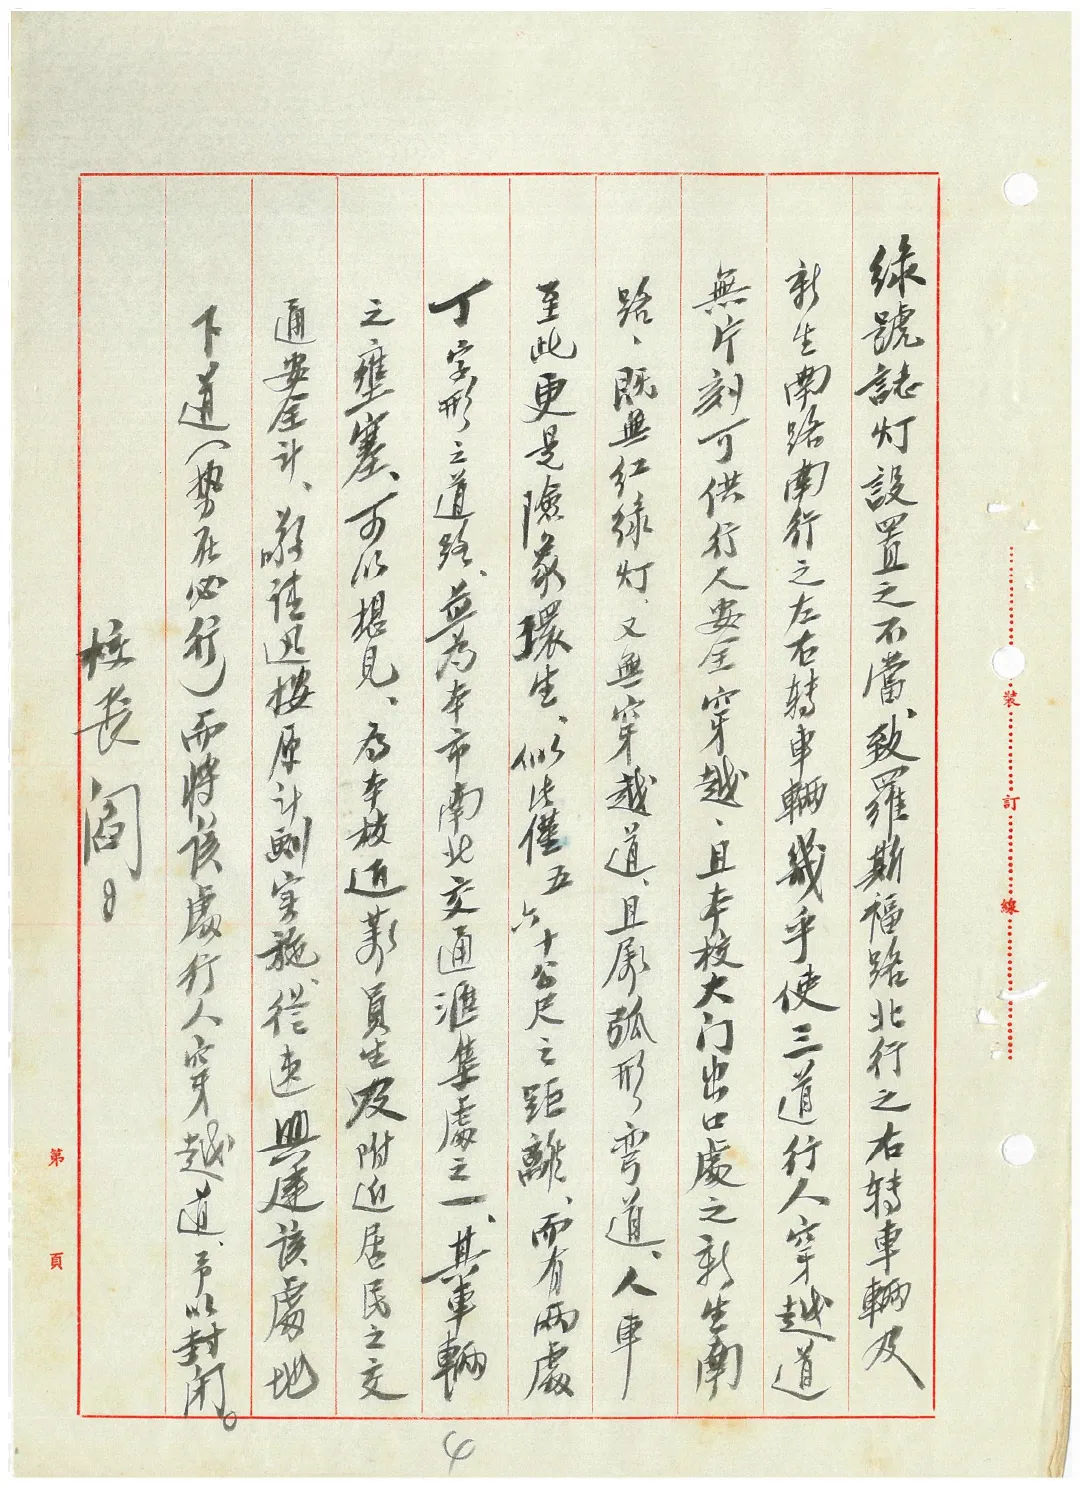 綠號誌灯設置之不當、致羅斯福路北行之右转車輛及
新生南路南行之左右转車輛幾乎使三道行人穿越道
無片刻可供行人安全穿越、且本校大门出口處之新生南
路、既無红綠灯、又無穿越道、且屬弧形弯道、人車
至此更是險象環生、似此僅五六十公尺之距離、而有兩處
丁字形之道路、并為本市南北交通滙集處之一、其車輛
之壅塞、可以想見、為本校近萬員生及附近居民之交
通安全计、敬請迅按原计劃実施、從速興建該處地
下道(势在必行)而将該處行人穿越道、予以封闭。
校長 阎
裝 訂 線
第 頁
4